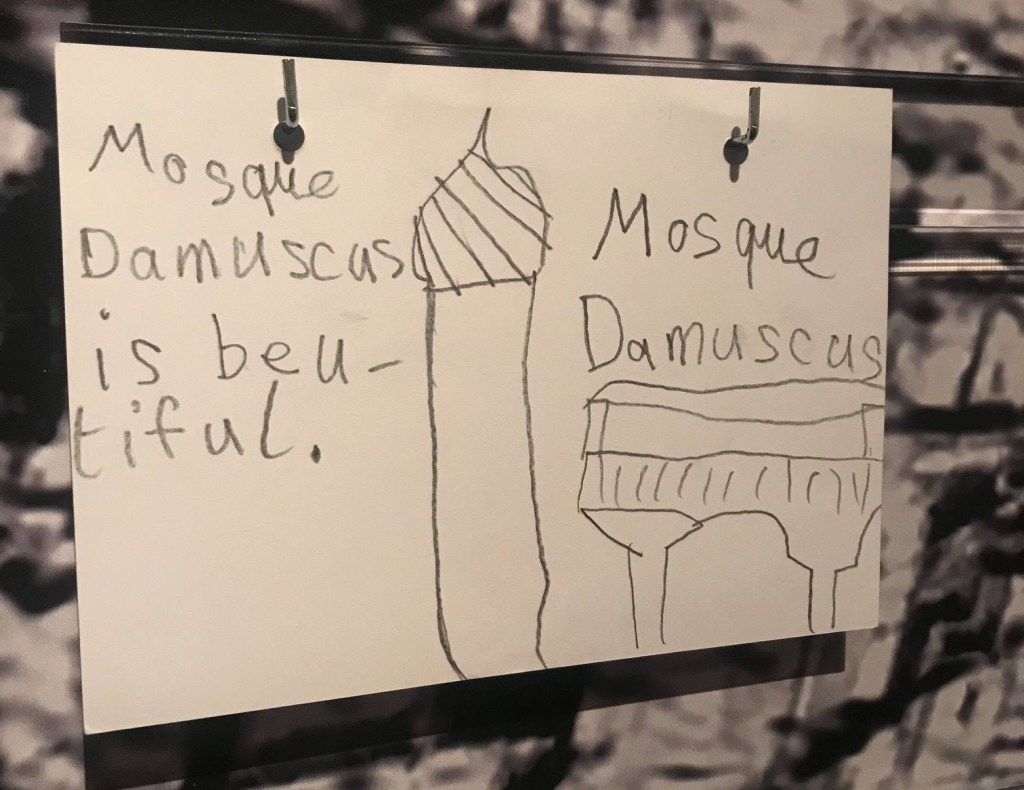 Mosque
Damuscus
is beu-
tiful.
Mosque
Damuscus